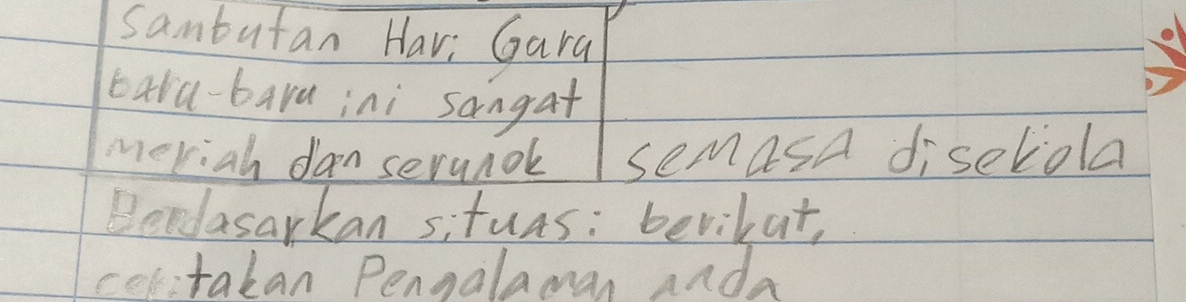 Sambutan Hari Gura
baru-baru ini sangat
meriah dan serunok
semasa disekola
Berdasarkan situasi berikut,
ceritakan Pengalaman anda